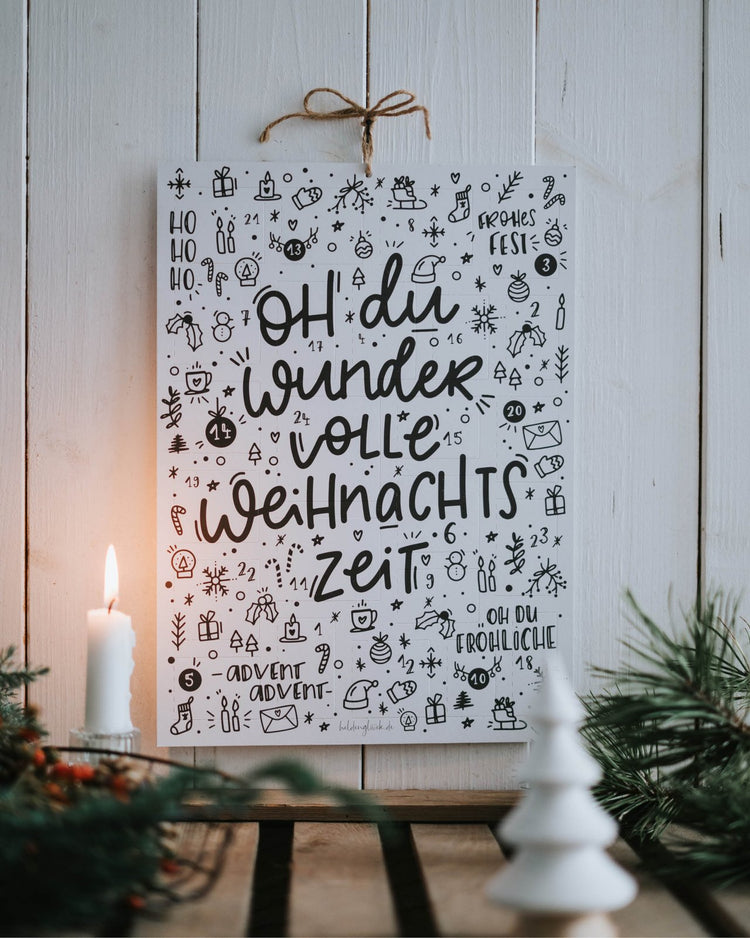 HO
HO
HO
21
13
8
FROHES
FEST
3
OH du
7
2
17
4
16
wunder
20
24
14
VOLLE
15
19
WeiHnacHTS
6
23
ZeiT
22
11
9
1
OH DU
FRÖHLICHE
12
18
5
10
-ADVENT
ADVENT-
heldenglück.de